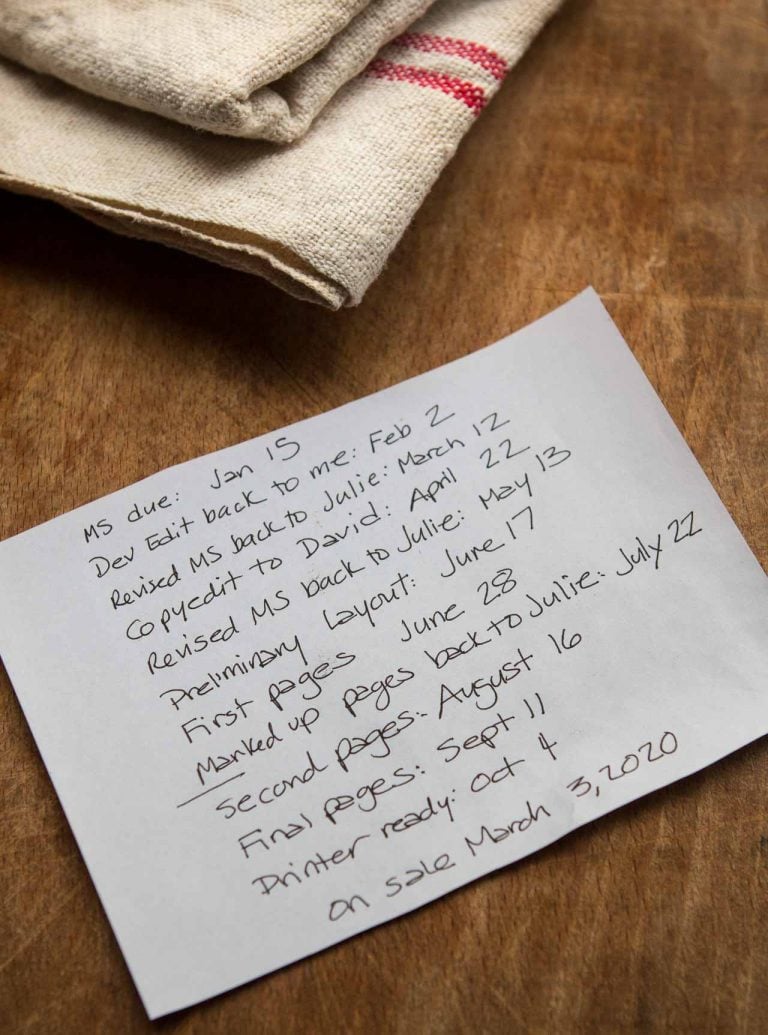 MS due: Jan 15
Dev Edit back to me: Feb 2
Revised MS back to Julie: March 12
Copyedit to David: April 22
Revised MS back to Julie: May 13
Preliminary Layout: June 17
First pages June 28
Marked up pages back to Julie: July 22
Second pages: August 16
Final pages: Sept 11
Printer ready: Oct 4
on sale March 3, 2020